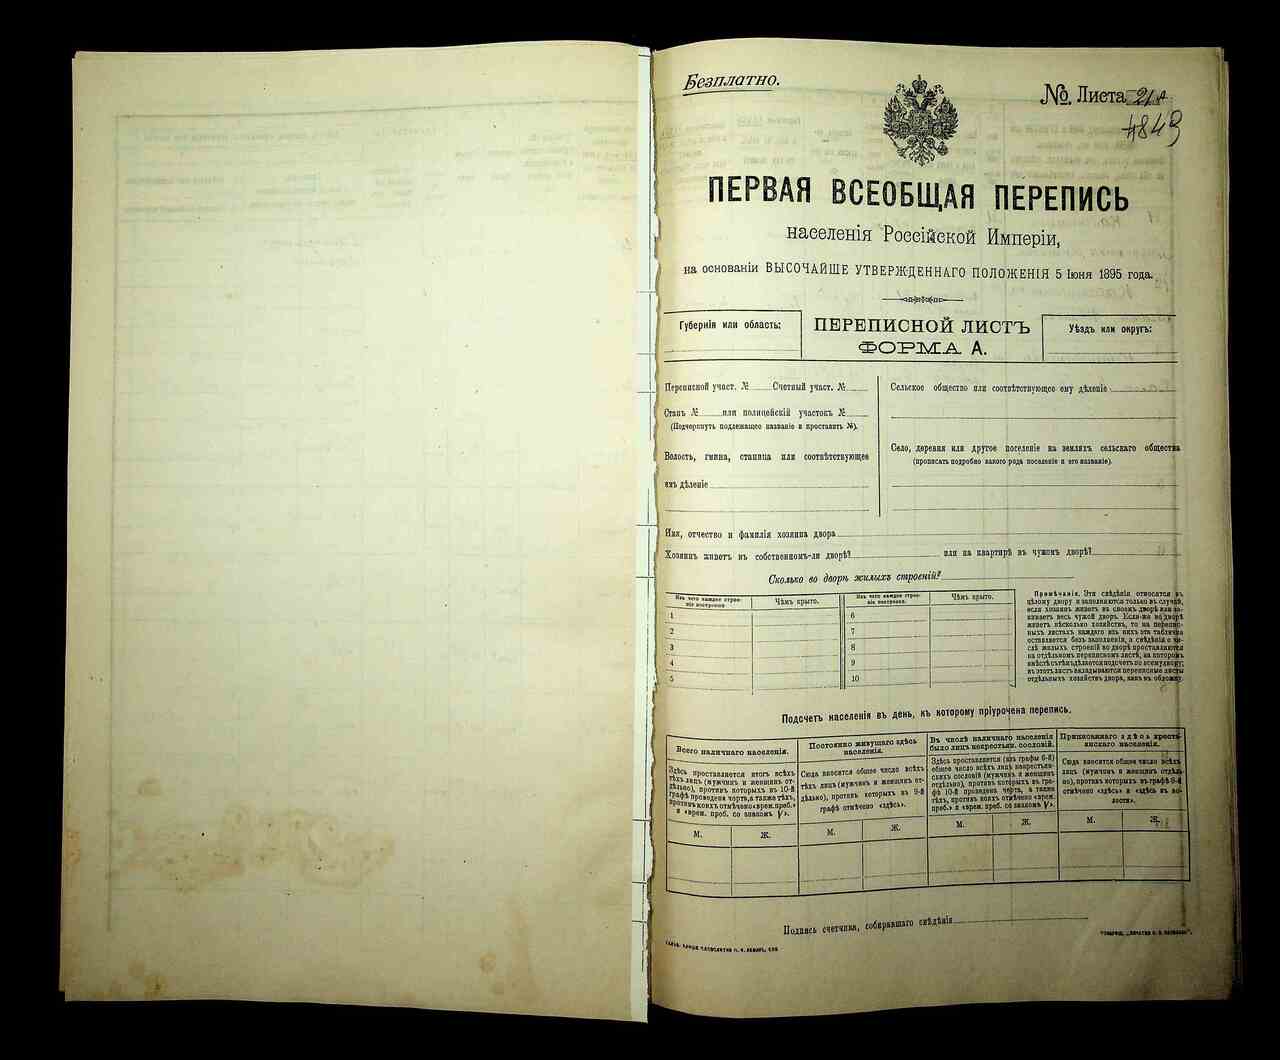 Безплатно.
№ Листа 21а
4843
ПЕРВАЯ ВСЕОБЩАЯ ПЕРЕПИСЬ
населенія Россійской Имперіи,
на основаніи ВЫСОЧАЙШЕ УТВЕРЖДЕННАГО ПОЛОЖЕНІЯ 5 Іюня 1895 года.
Губернія или область:
ПЕРЕПИСНОЙ ЛИСТЪ
ФОРМА А.
Уѣздъ или округъ:
Переписной участ. № Счетный участ. №
Станъ № или полицейскій участокъ №
(Подчеркнуть подлежащее названіе и проставить №).
Волость, гмина, станица или соотвѣтствующее
емъ дѣленіе
Сельское общество или соотвѣтствующее ему дѣленіе
Село, деревня или другое поселеніе на земляхъ сельскаго общества
(прописать подробно какого рода поселеніе и его названіе).
Имя, отчество и фамилія хозяина двора
Хозяинъ живетъ въ собственномъ-ли дворѣ? или на квартирѣ въ чужомъ дворѣ?
Сколько во дворѣ жилыхъ строеній?
Изъ чего каждое строе-
ніе построено
Чѣмъ крыто.
Изъ чего каждое строе-
ніе построено.
Чѣмъ крыто.
1
2
3
4
5
6
7
8
9
10
Примѣчаніе. Эти свѣдѣнія относятся къ
цѣлому двору и заполняются только въ случаѣ,
если хозяинъ живетъ въ своемъ дворѣ или за-
нимаетъ весь чужой дворъ. Если-же во дворѣ
живетъ нѣсколько хозяйствъ, то на перепис-
ныхъ листахъ каждаго изъ нихъ эта табличка
оставляется безъ заполненія, а свѣдѣнія о чи-
слѣ жилыхъ строеній во дворѣ проставляются
на отдѣльномъ переписномъ листѣ, на которомъ
вмѣстѣ съ тѣмъ дѣлается подсчетъ по всему двору;
въ этотъ листъ вкладываются переписные листы
отдѣльныхъ хозяйствъ двора, какъ въ обложку.
Подсчетъ населенія въ день, къ которому пріурочена перепись.
Всего наличнаго населенія.
Здѣсь проставляется итогъ всѣхъ
тѣхъ лицъ (мужчинъ и женщинъ от-
дѣльно), противъ которыхъ въ 10-й
графѣ проведена черта, а также тѣхъ,
противъ коихъ отмѣчено «врем. преб.»
и «врем. проб. со знакомъ V».
Постоянно живущаго здѣсь
населенія.
Сюда вносится общее число всѣхъ
тѣхъ лицъ (мужчинъ и женщинъ от-
дѣльно), противъ которыхъ въ 9-й
графѣ отмѣчено «здѣсь».
Въ числѣ наличнаго населенія
было лицъ некрестьян. сословій.
Здѣсь проставляется (изъ графы 6-й)
общее число всѣхъ лицъ некрестьян-
скихъ сословій (мужчинъ и женщинъ
отдѣльно), противъ которыхъ въ гра-
фѣ 10-й проведена черта, а также
тѣхъ, противъ коихъ отмѣчено «врем.
преб.» и «врем. проб. со знакомъ V».
Приписаннаго здѣсь кресть-
янскаго населенія.
Сюда вносится общее число всѣхъ
лицъ (мужчинъ и женщинъ отдѣль-
но), противъ которыхъ въ графѣ 8-й
отмѣчено «здѣсь» и «здѣсь въ во-
лости».
М. Ж. М. Ж. М. Ж. М. Ж.
Подпись счетчика, собиравшаго свѣдѣнія